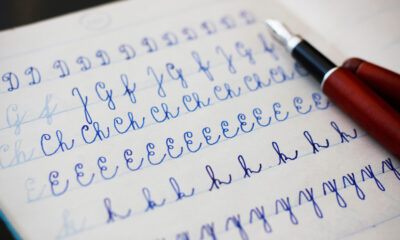 D D D D D D D D D D D D
G f J G f J G f J G f
Ch Ch Ch Ch Ch Ch Ch Ch Ch Ch
E E E E E E E E E E E E E E
k k k k k k k k
y y y y y y y y y